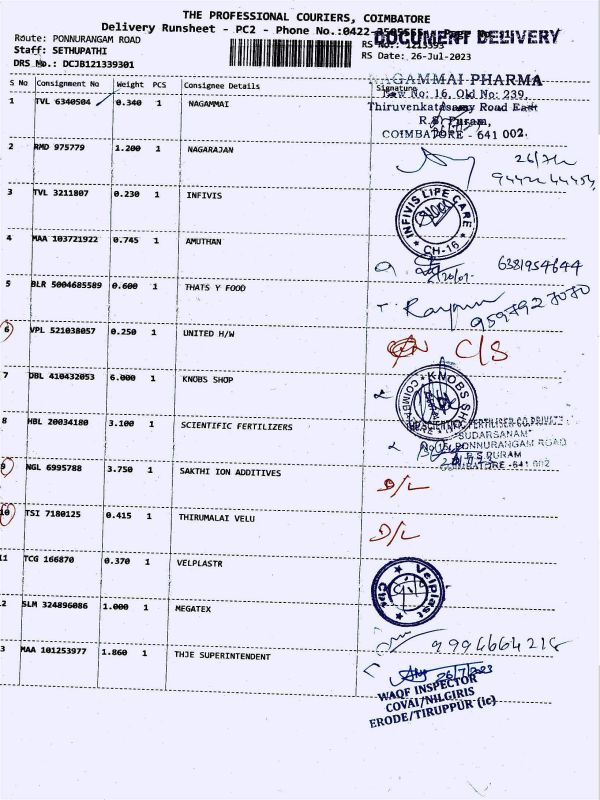 THE PROFESSIONAL COURIERS, COIMBATORE
Delivery Runsheet - PC2 - Phone No.:0422
DOCUMENT DELIVERY
Route: PONNURANGAM ROAD
RS No.: 1213393
Staff: SETHUPATHI
RS Date: 26-Jul-2023
DRS No.: DCJB121339301
NAGAMMAI PHARMA
S No Consignment No Weight PCS Consignee Details Signature
New No: 16, Old No: 239,
1 TVL 6340504 0.340 1 NAGAMMAI
Thiruvenkatasamy Road East
R.S. Puram,
COIMBATORE - 641 002.
2 RMD 975779 1.200 1 NAGARAJAN
26/7/
3 TVL 3211807 0.230 1 INFIVIS
INFIVIS LIFE CARE
CH-16
4 MAA 103721922 0.745 1 AMUTHAN
6381954644
5 BLR 5004685589 0.600 1 THATS Y FOOD
9597927070
6 VPL 521038057 0.250 1 UNITED H/W
C/S
7 DBL 410432053 6.000 1 KNOBS SHOP
KNOBS SHOP
8 HBL 20034180 3.100 1 SCIENTIFIC FERTILIZERS
SCIENTIFIC FERTILISER CO.PRIVATE
"SUDARSANAM"
PONNURANGAM ROAD
R.S.PURAM
COIMBATORE -641 002
9 NGL 6995788 3.750 1 SAKTHI ION ADDITIVES
D/L
10 TSI 7180125 0.415 1 THIRUMALAI VELU
D/L
11 TCG 166870 0.370 1 VELPLASTR
Velplast
2 SLM 324896086 1.000 1 MEGATEX
9994664214
3 MAA 101253977 1.860 1 THJE SUPERINTENDENT
26/7/2023
WAQF INSPECTOR
COVAI/NILGIRIS
ERODE/TIRUPPUR (ic)